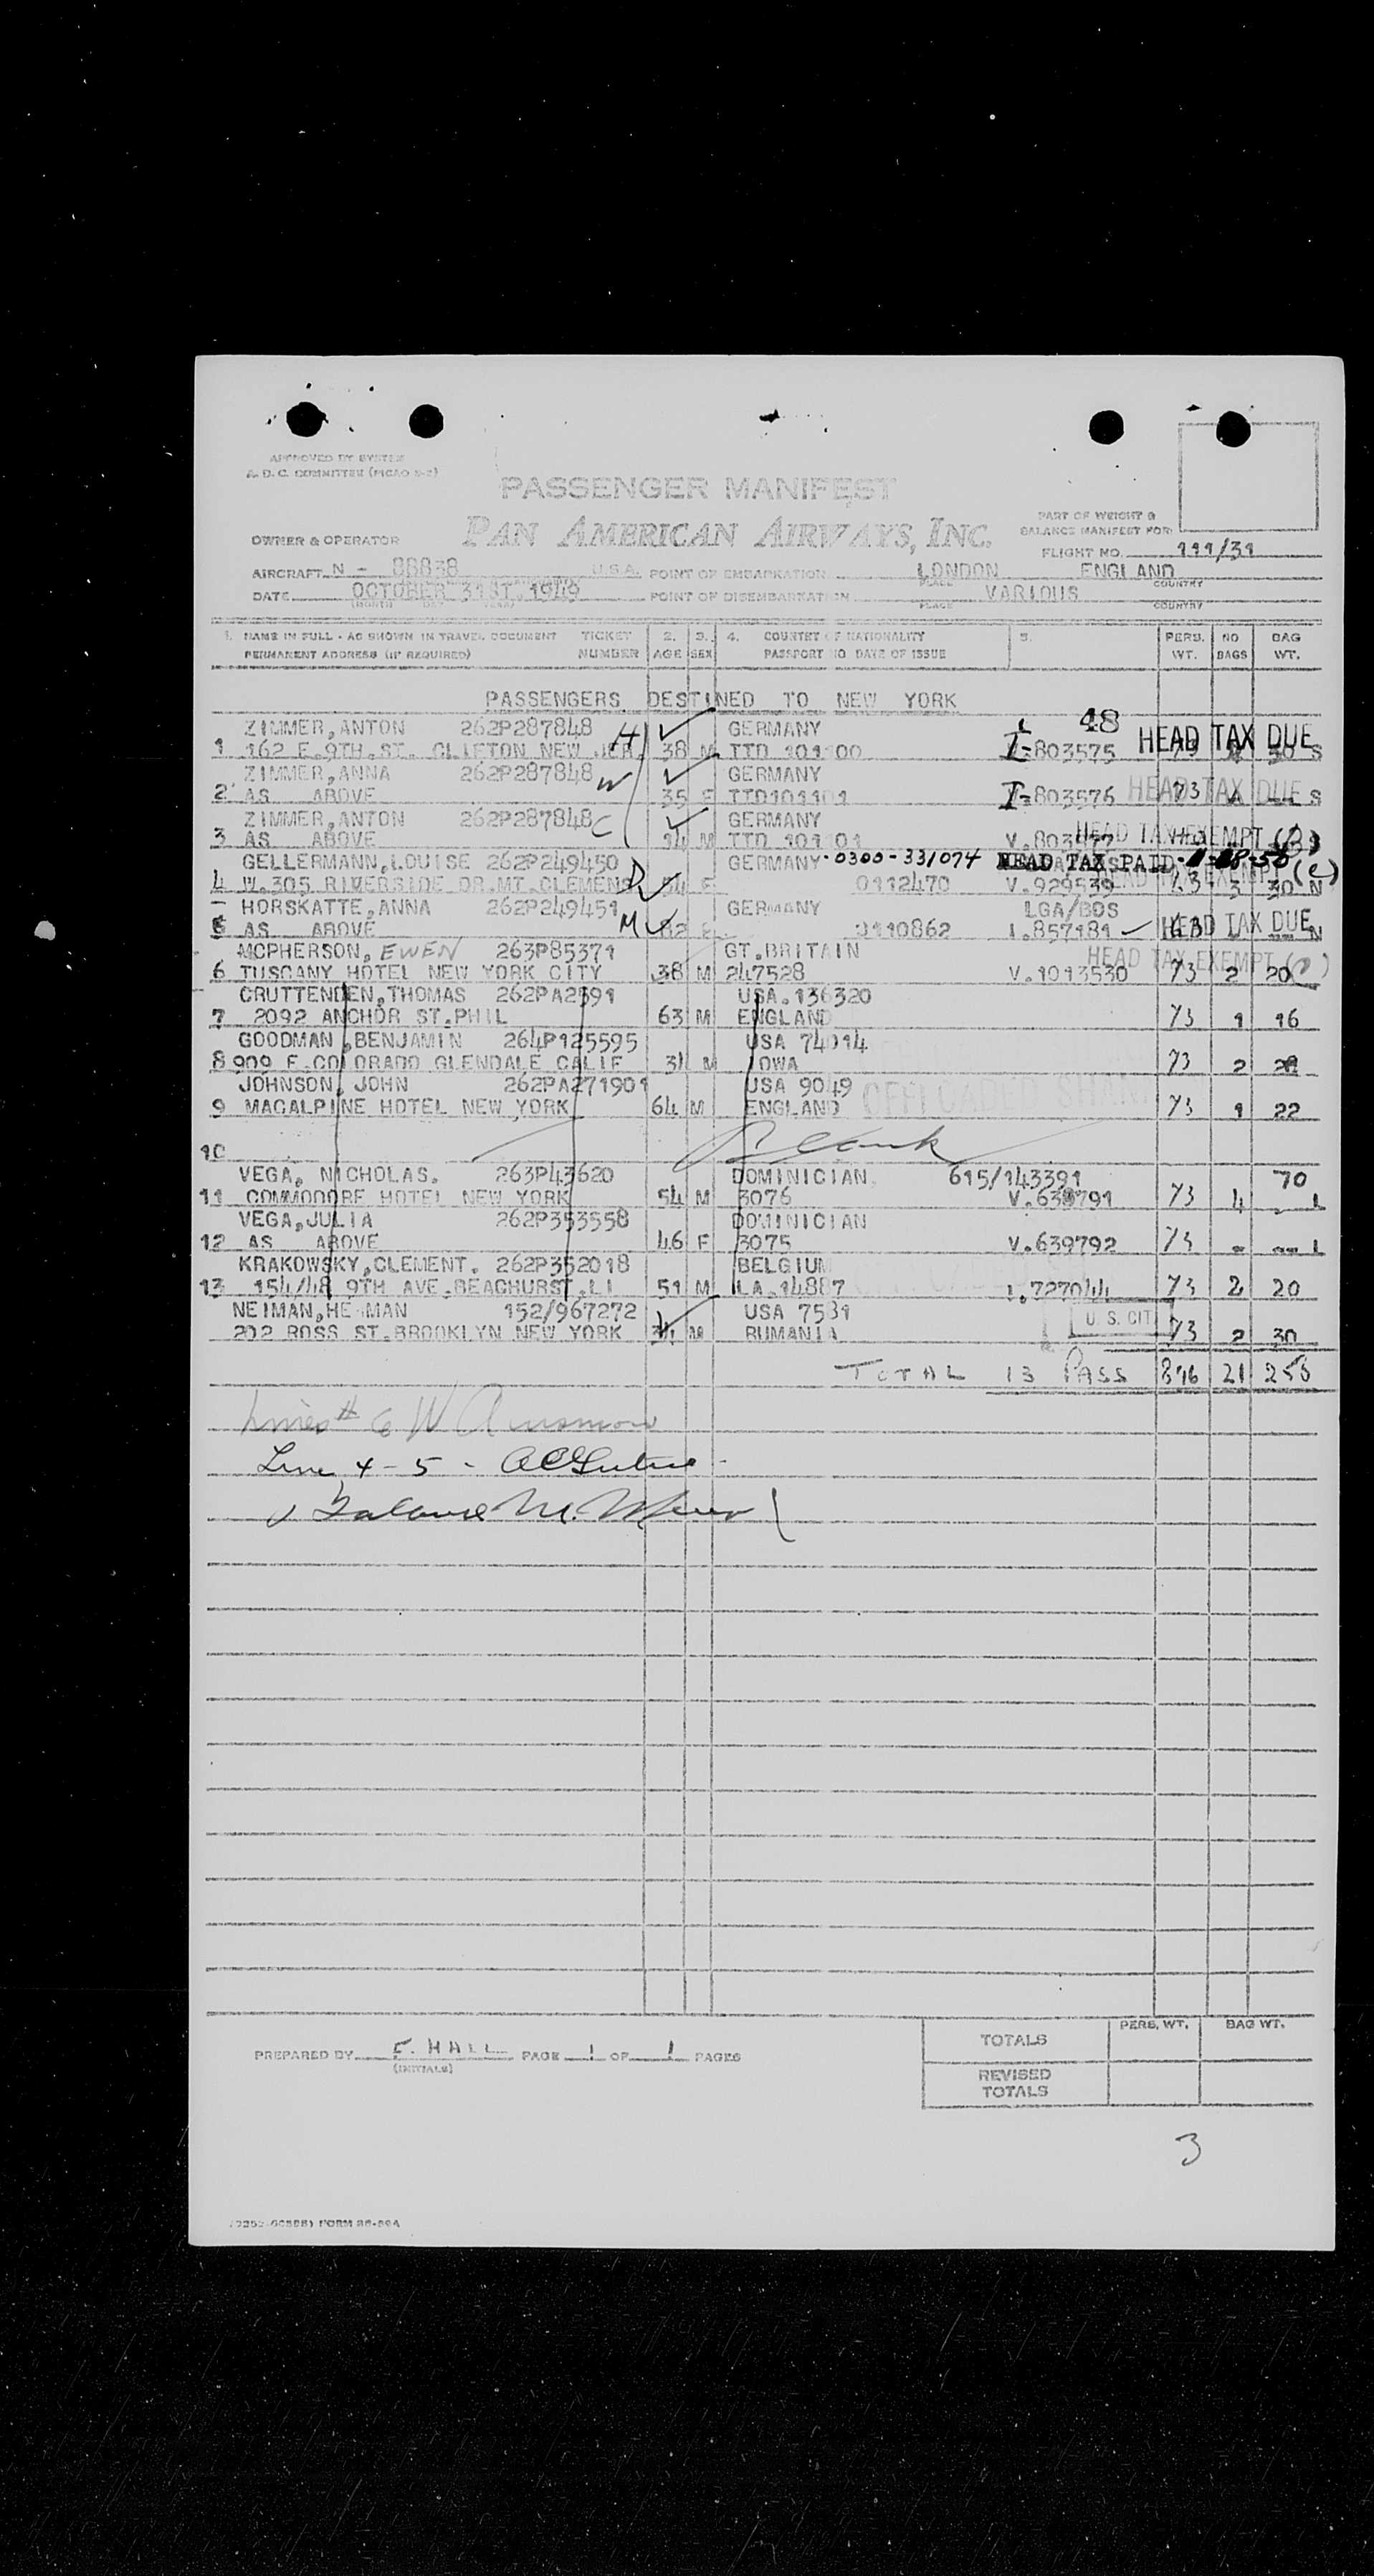 APPROVED BY SYSTEM
A. O. C. COMMITTEE (PICAO 5-2)
PASSENGER MANIFEST
PART OF WEIGHT &
BALANCE MANIFEST FOR
OWNER & OPERATOR PAN AMERICAN AIRWAYS, INC.
FLIGHT NO. 111/31
AIRCRAFT N - 88838 U.S.A. POINT OF EMBARKATION LONDON ENGLAND
PLACE COUNTRY
DATE OCTOBER 31ST. 1949 POINT OF DISEMBARKATION VARIOUS
(MONTH) DAY YEAR) PLACE COUNTRY
1. NAME IN FULL - AS SHOWN IN TRAVEL DOCUMENT TICKET 2. 3. 4. COUNTRY OF NATIONALITY 5. PERS. NO BAG
PERMANENT ADDRESS (IF REQUIRED) NUMBER AGE SEX PASSPORT NO DATE OF ISSUE WT. BAGS WT.
PASSENGERS DESTINED TO NEW YORK
ZIMMER,ANTON 262P287848 H GERMANY 48 HEAD TAX DUE
1 162 E.9TH.ST. CLIFTON NEW JER. 38 M TTD 101100 I-803575 S
ZIMMER,ANNA 262P287848 W GERMANY HEAD TAX DUE
2 AS ABOVE 35 F TTD101101 I-803576 73 S
ZIMMER,ANTON 262P287848 C GERMANY HEAD TAX EXEMPT
3 AS ABOVE 14 M TTD 101101 V.803577
GELLERMANN,LOUISE 262P249450 GERMANY 0300-331074 HEAD TAX PAID
4 W.305 RIVERSIDE DR.MT.CLEMENS F 0112470 V.929539 3 30 N
HORSKATTE,ANNA 262P249451 M GERMANY LGA/BOS
5 AS ABOVE F 0110862 I.857181 HEAD TAX DUE N
MCPHERSON, EWEN 263P85371 GT.BRITAIN HEAD TAX EXEMPT
6 TUSCANY HOTEL NEW YORK CITY 38 M 247528 V.1013530 73 2 20
CRUTTENDEN,THOMAS 262PA2591 USA.136320
7 2092 ANCHOR ST.PHIL 63 M ENGLAND 73 1 16
GOODMAN ,BENJAMIN 264P125595 USA 74014
8 909 E.COLORADO GLENDALE CALIF 31 M IOWA 73 2
JOHNSON, JOHN 262PA271901 USA 9049 OFFLOADED SHAN
9 MACALPINE HOTEL NEW YORK 64 M ENGLAND 73 1 22
10 Blank
VEGA, NICHOLAS. 263P43620 DOMINICIAN. 615/143391 70
11 COMMODORE HOTEL NEW YORK 54 M 3076 V.639791 73 4 L
VEGA,JULIA 262P353558 DOMINICIAN
12 AS ABOVE 46 F 3075 V.639792 73 - -- L
KRAKOWSKY,CLEMENT. 262P352018 BELGIUM
13 154/48 9TH AVE.BEACHURST.LI 51 M LA.14887 I.727044 73 2 20
NEIMAN,HERMAN 152/967272 USA 7531 U. S. CIT
202 ROSS ST.BROOKLYN NEW YORK 34 M RUMANIA 73 2 30
TOTAL 13 PASS 896 21
Line 4 - 5 -
PREPARED BY F. HALL PAGE 1 OF 1 PAGES
(INITIALS)
PERS. WT. BAG WT.
TOTALS
REVISED
TOTALS
3